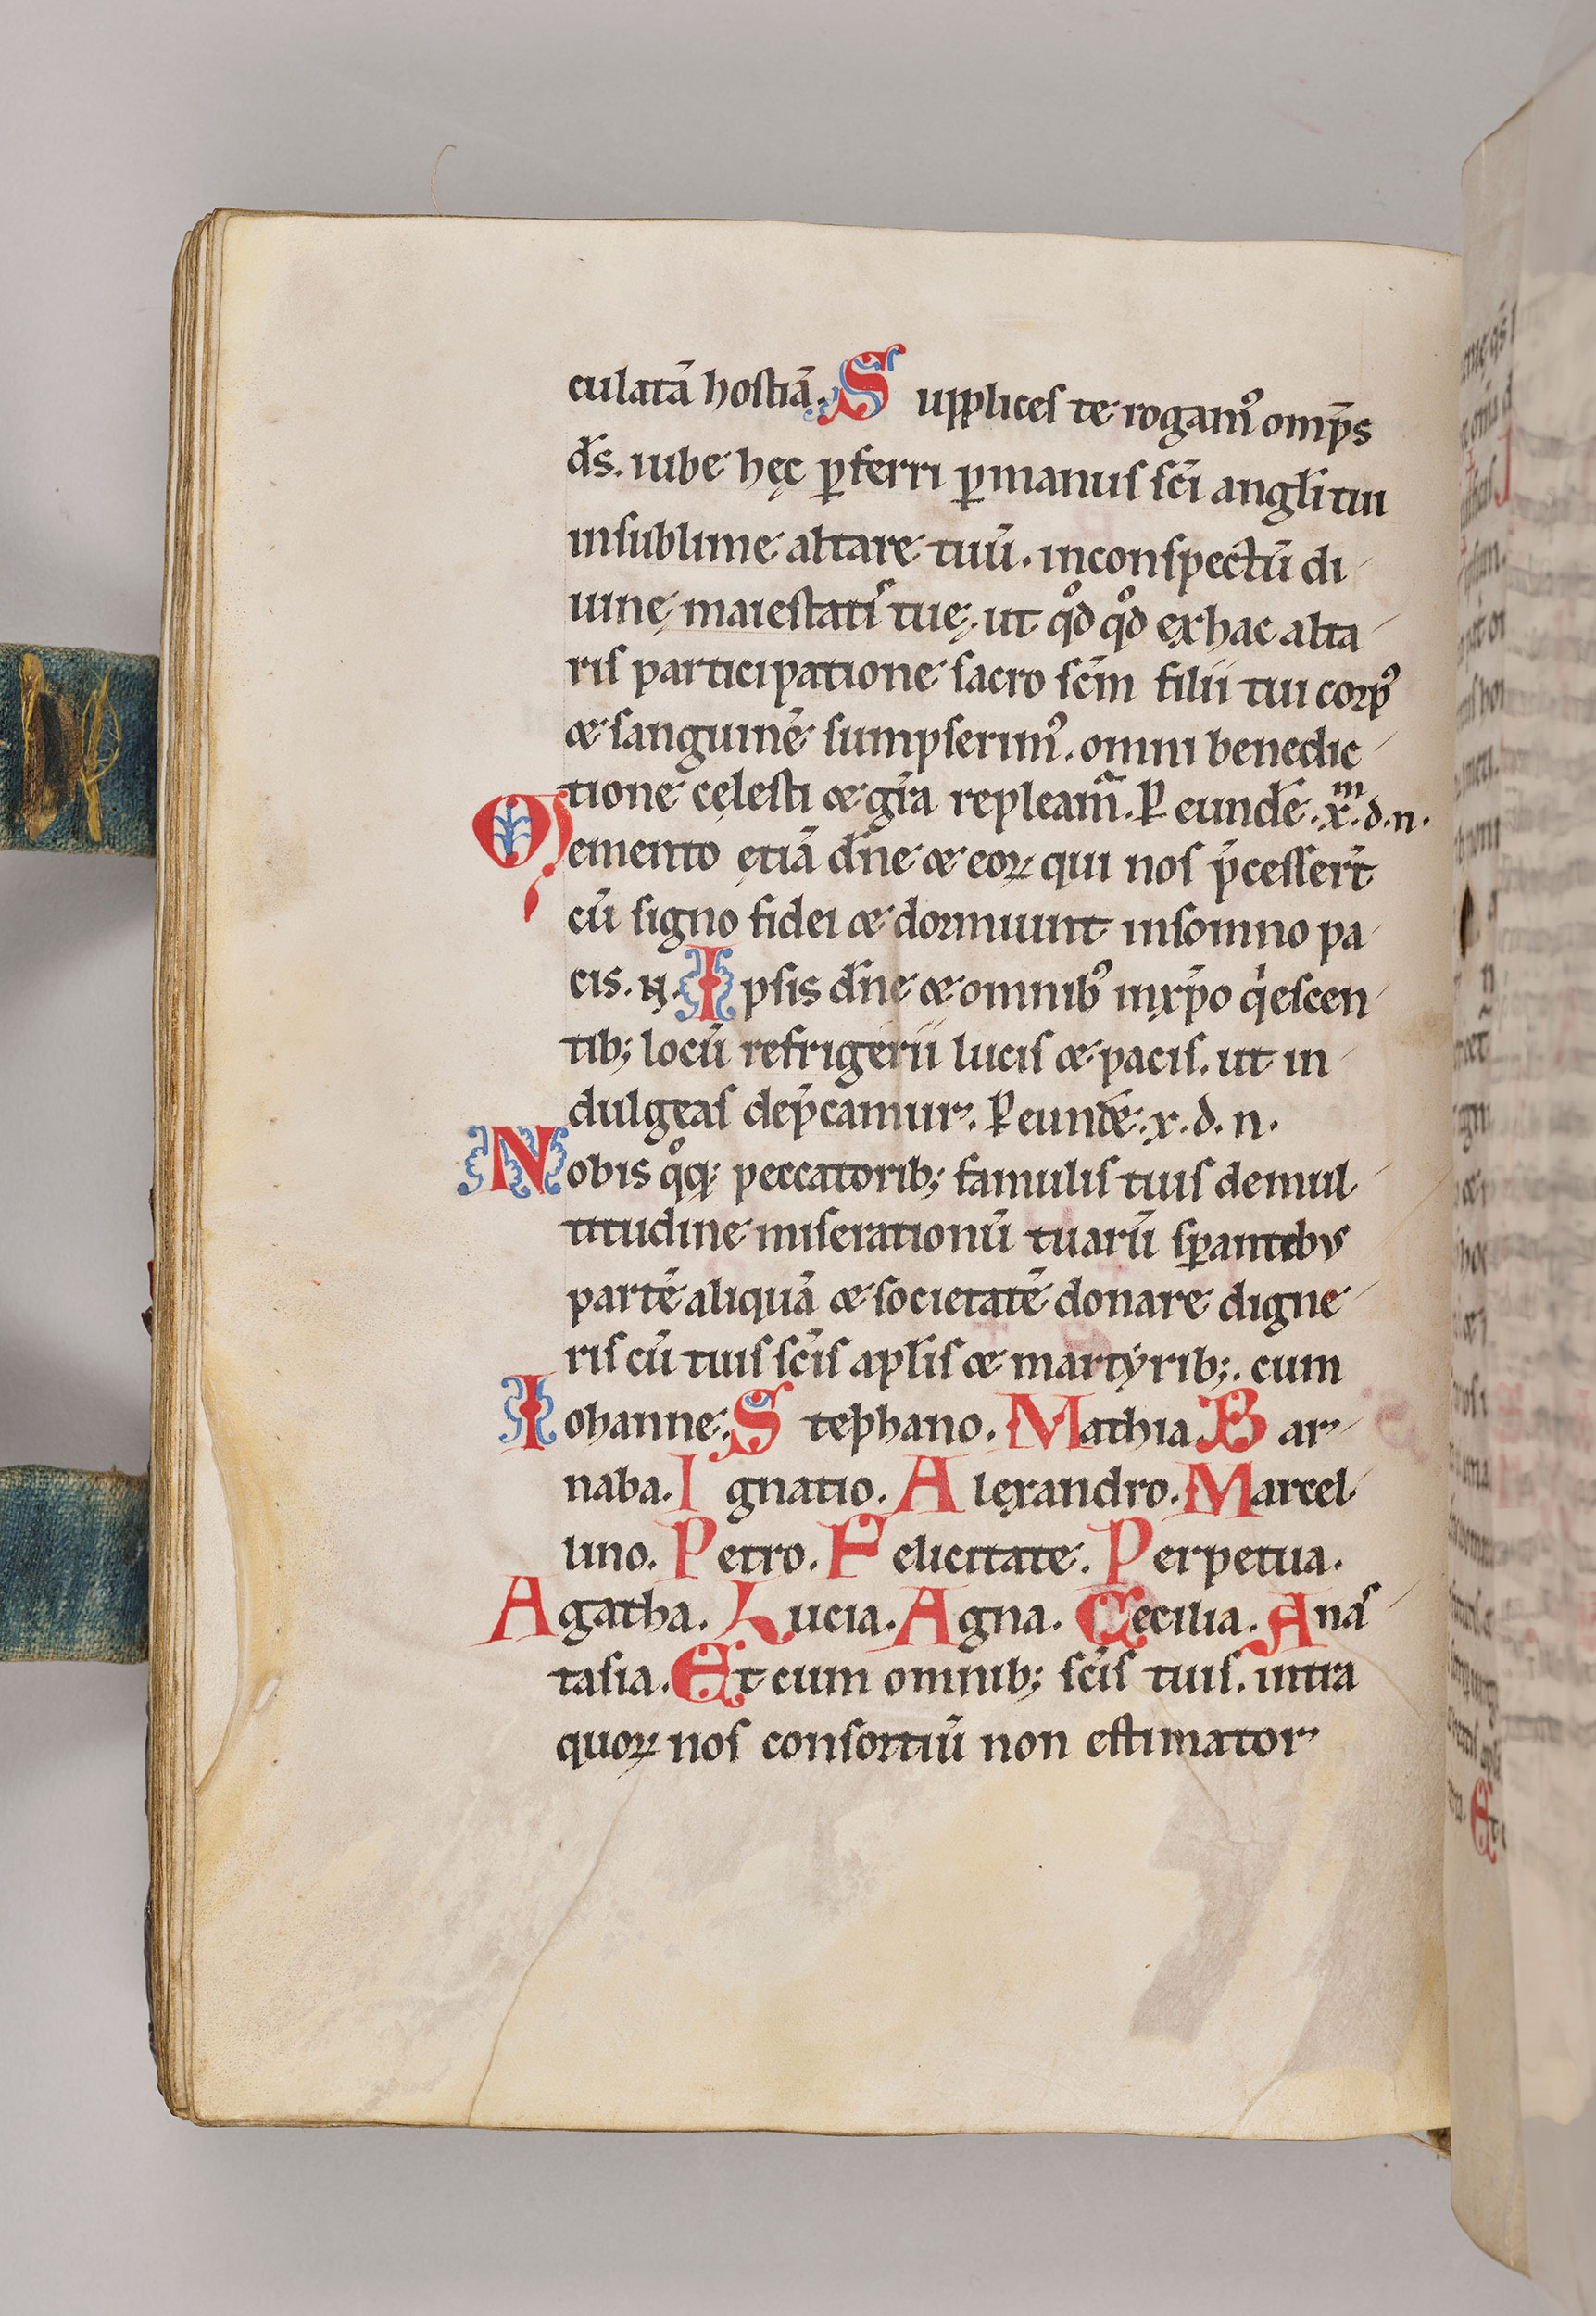 culatā hostiā. Supplices te rogamꝰ omp̄s
d̄s. iube hęc ꝑferri ꝑ manus sc̄i angl̄i tui
insublime altare tuū. inconspectū di
uinę maiestatis tuę. ut qͦd qͦd exhac alta
ris participatione sacro sc̄m filii tui corpꝰ
& sanguinē sumpserimꝰ. omni benedic
tione celesti & gr̄a repleam̄. P̱ eundē. xͫ. d. n.
Memento etiā dn̄e & eoꝝ qui nos p̄cessert̄
cū signo fidei & dormiunt insomno pa
cis. N. Ipsis dn̄e & omnibꝰ inxp̄o qͥescen
tib; locū refrigerii lucis & pacis. ut in
dulgeas dep̄camur. P̱ eundē. x. d. n.
Nobis qͦq; peccatorib; famulis tuis demul
titudine miserationū tuarū sꝑantibus
partē aliquā & societatē donare digne
ris cū tuis sc̄is apl̄is & martẏrib;. cum
Iohanne. Stephano. Mathia. Bar
naba. Ignatio. Alexandro. Marcel
lino. Petro. Felicitate. Perpetua.
Agatha. Lucia. Agna. Cecilia. Anas
tasia. Et cum omnib; sc̄is tuis. intra
quoꝝ nos consortiū non estimator